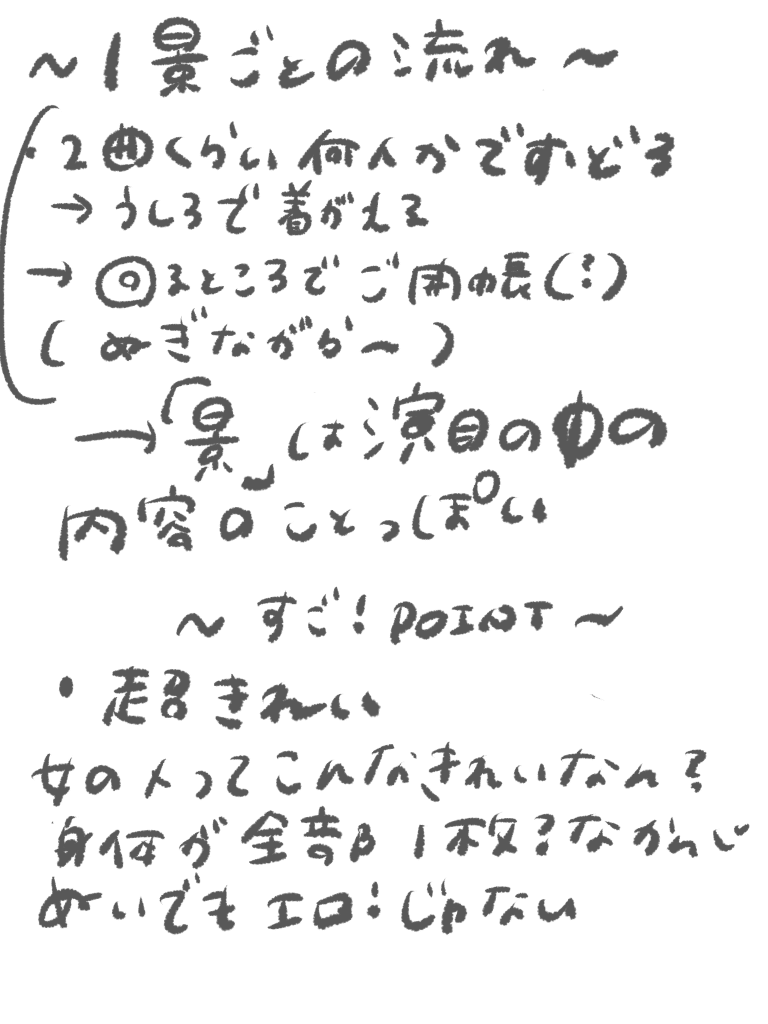 ～1景ごとの流れ～
・2曲くらい何人かでおどる
→うしろで着がえる
→回るところでご開帳(?)
(ぬぎながら～)
→「景」は演目の中の
内容のことっぽい
～すご!POINT～
・超きれい
女の人ってこんなきれいなん?
身体が全部1枚?なかんじ
ぬいでもエロ!じゃない